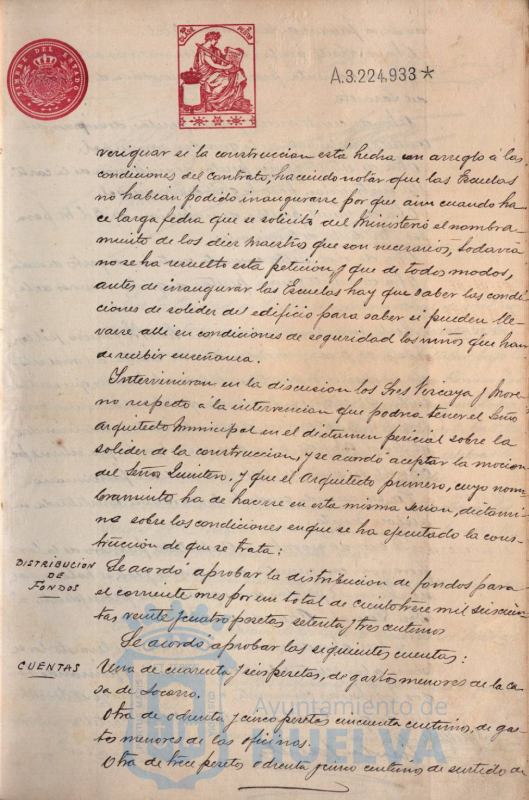 TIMBRE DEL ESTADO
A.3.224.933*
veriguar si la construccion está hecha con arreglo á las
condiciones del contrato, haciendo notar que las Escuelas
no habian podido inaugurarse por que aun cuando ha-
ce larga fecha que se solicitó del Ministerio el nombra-
miento de los diez Maestros que son necesarios, todavia
no se ha resuelto esta peticion y que de todos modos,
antes de inaugurar las Escuelas hay que saber las condi-
ciones de solidez del edificio para saber si pueden lle-
varse alli en condiciones de seguridad los niños que han
de recibir enseñanza.
Intervinieron en la discusion los Sres Vizcaya y More-
no respecto á la intervencion que podria tener el Señor
Arquitecto Municipal en el dictamen pericial sobre la
solidez de la construccion, y se acordó aceptar la mocion
del Señor Quintero, y que el Arquitecto primero, cuyo nom-
bramiento ha de hacerse en esta misma sesion, dictami-
ne sobre las condiciones en que se ha ejecutado la cons-
trucción de que se trata:
DISTRIBUCION
DE
FONDOS
Se acordó aprobar la distribucion de fondos para
el corriente mes por un total de ciento trece mil seiscien-
tas veinte y cuatro pesetas setenta y tres centimos
Se acordó aprobar las siguientes cuentas:
CUENTAS
Una de cuarenta y seis pesetas, de gastos menores de la Ca-
sa de Socorro.
Otra de ochenta y cinco pesetas cincuenta centimos, de gas-
tos menores de las oficinas.
Otra de trece pesetas ochenta y cinco centimos de surtido de
Ayuntamiento de
HUELVA